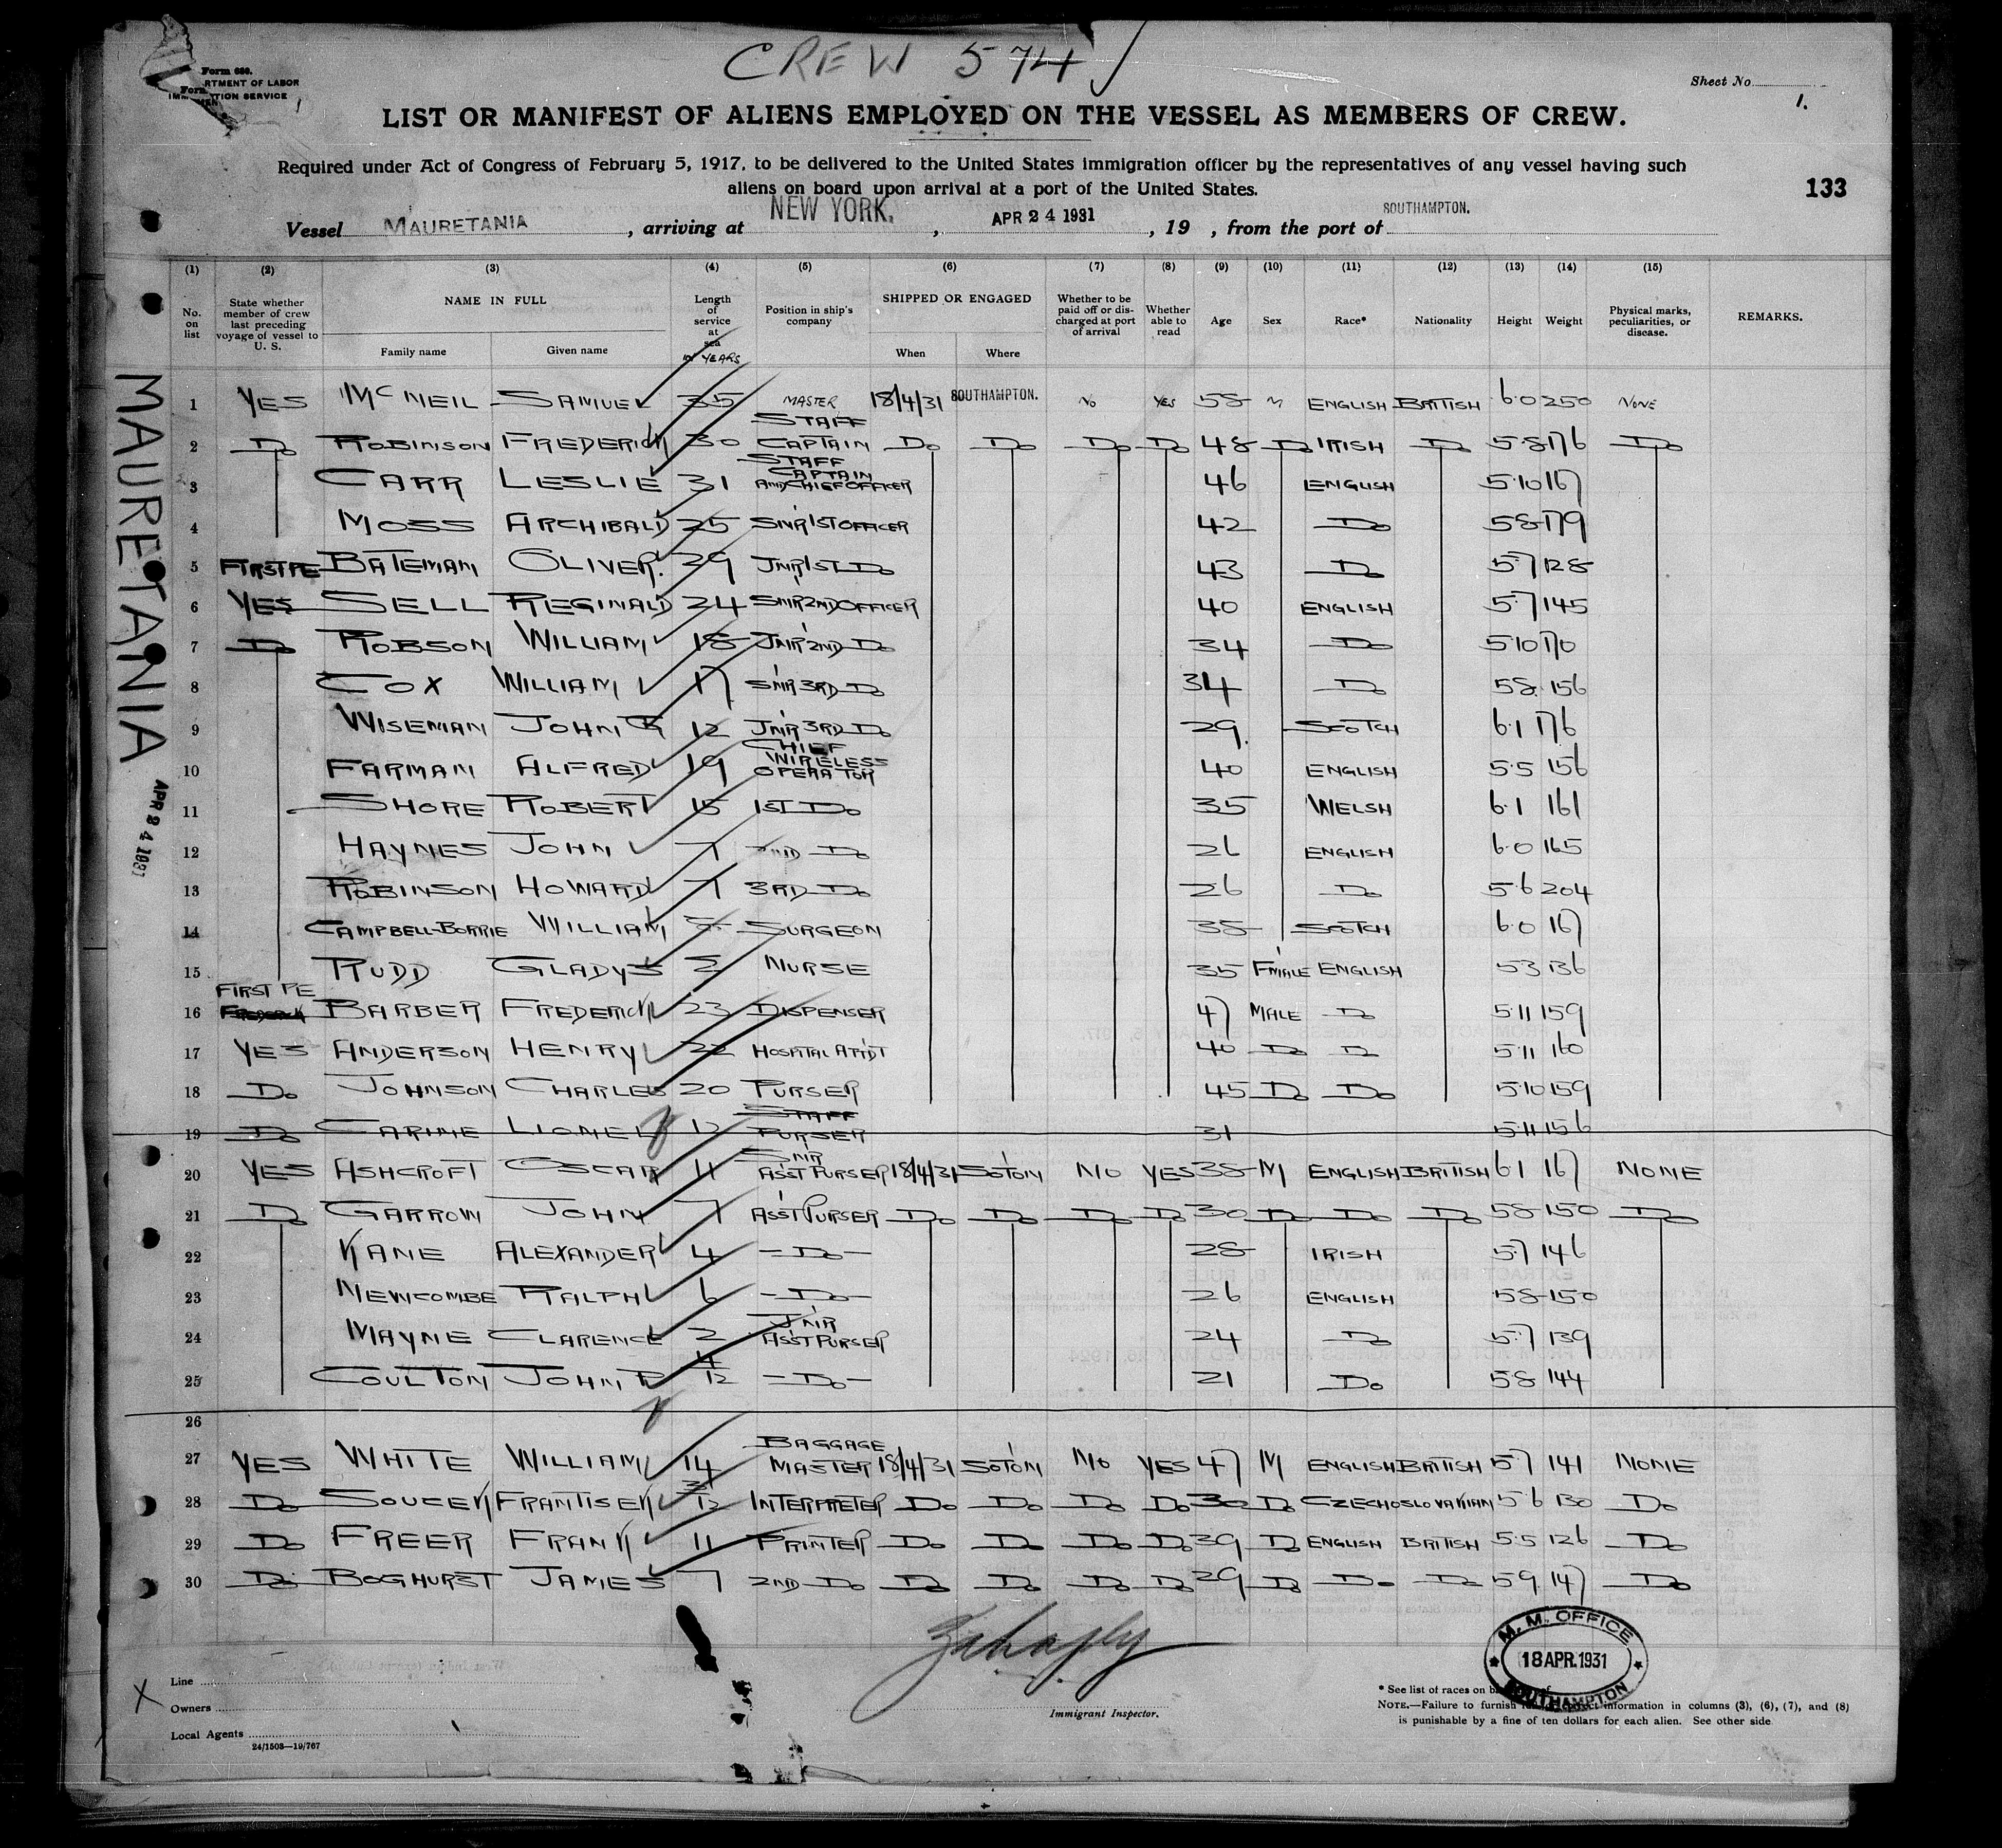 CREW 574
Form 680.
RTMENT OF LABOR
TION SERVICE
Sheet No. 1.
LIST OR MANIFEST OF ALIENS EMPLOYED ON THE VESSEL AS MEMBERS OF CREW.
Required under Act of Congress of February 5, 1917, to be delivered to the United States immigration officer by the representatives of any vessel having such
aliens on board upon arrival at a port of the United States.
133
Vessel MAURETANIA, arriving at NEW YORK, APR 24 1931, 19 , from the port of SOUTHAMPTON.
(1) (2) (3) (4) (5) (6) (7) (8) (9) (10) (11) (12) (13) (14) (15)
No. on list
State whether member of crew last preceding voyage of vessel to U. S.
NAME IN FULL
Family name
Given name
Length of service at sea
IN YEARS
Position in ship's company
SHIPPED OR ENGAGED
When
Where
Whether to be paid off or discharged at port of arrival
Whether able to read
Age
Sex
Race*
Nationality
Height
Weight
Physical marks, peculiarities, or disease.
REMARKS.
MAURETANIA
APR 24 1931
1 YES MCNEIL SAMUEL 35 MASTER 18/4/31 SOUTHAMPTON. NO YES 58 M ENGLISH BRITISH 6.0 250 NONE
2 Do ROBINSON FREDERICK 30 STAFF CAPTAIN Do Do Do Do 48 Do IRISH Do 5.8 176 Do
3 CARR LESLIE 31 STAFF CAPTAIN AND CHIEF OFFICER 46 ENGLISH 5.10 167
4 MOSS ARCHIBALD 25 SNR 1ST OFFICER 42 Do 5.8 179
5 FIRST PE BATEMAN OLIVER. 29 JNR 1ST Do 43 Do 5.7 128
6 YES SELL REGINALD 24 SNR 2ND OFFICER 40 ENGLISH 5.7 145
7 Do ROBSON WILLIAM 18 JNR 2ND Do 34 Do 5.10 170
8 COX WILLIAM 17 SNR 3RD Do 34 Do 5.8. 156
9 WISEMAN JOHN G 12 JNR 3RD Do 29. SCOTCH 6.1 176
10 FARMAN ALFRED 19 CHIEF WIRELESS OPERATOR 40 ENGLISH 5.5 156
11 SHORE ROBERT 15 1ST Do 35 WELSH 6.1 161
12 HAYNES JOHN 7 2ND Do 26 ENGLISH 6.0 165
13 ROBINSON HOWARD 7 3RD Do 26 Do 5.6 204
14 CAMPBELL-BORRIE WILLIAM SURGEON 38 SCOTCH 6.0 167
15 RUDD GLADYS 2 NURSE 35 F'MALE ENGLISH 5.3 136
16 FIRST PE BARBER FREDERICK 23 DISPENSER 47 MALE Do 5.11 159
17 YES ANDERSON HENRY 22 HOSPITAL ATT'DT 40 Do Do 5.11 160
18 Do JOHNSON CHARLES 20 PURSER 45 Do Do 5.10 159
19 Do CARINE LIONEL 12 STAFF PURSER 31 5.11 156
20 YES ASHCROFT OSCAR 11 SNR ASS'T PURSER 18/4/31 SO'TON NO YES 38 M ENGLISH BRITISH 6.1 167 NONE
21 Do GARROW JOHN 7 ASS'T PURSER Do Do Do Do 30 Do Do Do 5.8 150 Do
22 KANE ALEXANDER 4 -Do- 28 IRISH 5.7 146
23 NEWCOMBE RALPH 6 -Do- 26 ENGLISH 5.8 150
24 MAYNE CLARENCE 2 JNR ASS'T PURSER 24 Do 5.7 139
25 COULTON JOHN R 4/12 -Do- 21 Do 5.8 144
26
27 YES WHITE WILLIAM 14 BAGGAGE MASTER 18/4/31 SO'TON NO YES 47 M ENGLISH BRITISH 5.7 141 NONE
28 Do SOUCEK FRANTISEK 3/12 INTERPRETER Do Do Do Do 30 Do CZECHOSLOVAKIAN 5.6 130 Do
29 Do FREER FRANK 11 PRINTER Do Do Do Do 39 Do ENGLISH BRITISH 5.5 126 Do
30 Do BOGHURST JAMES 7 2ND Do Do Do Do Do 29 Do Do Do 5.9. 147 Do
M. M. OFFICE
18 APR. 1931
SOUTHAMPTON
X
Line
Owners
Local Agents
24/1503—19/767
Immigrant Inspector.
* See list of races on
NOTE.—Failure to furnish information in columns (3), (6), (7), and (8)
is punishable by a fine of ten dollars for each alien. See other side